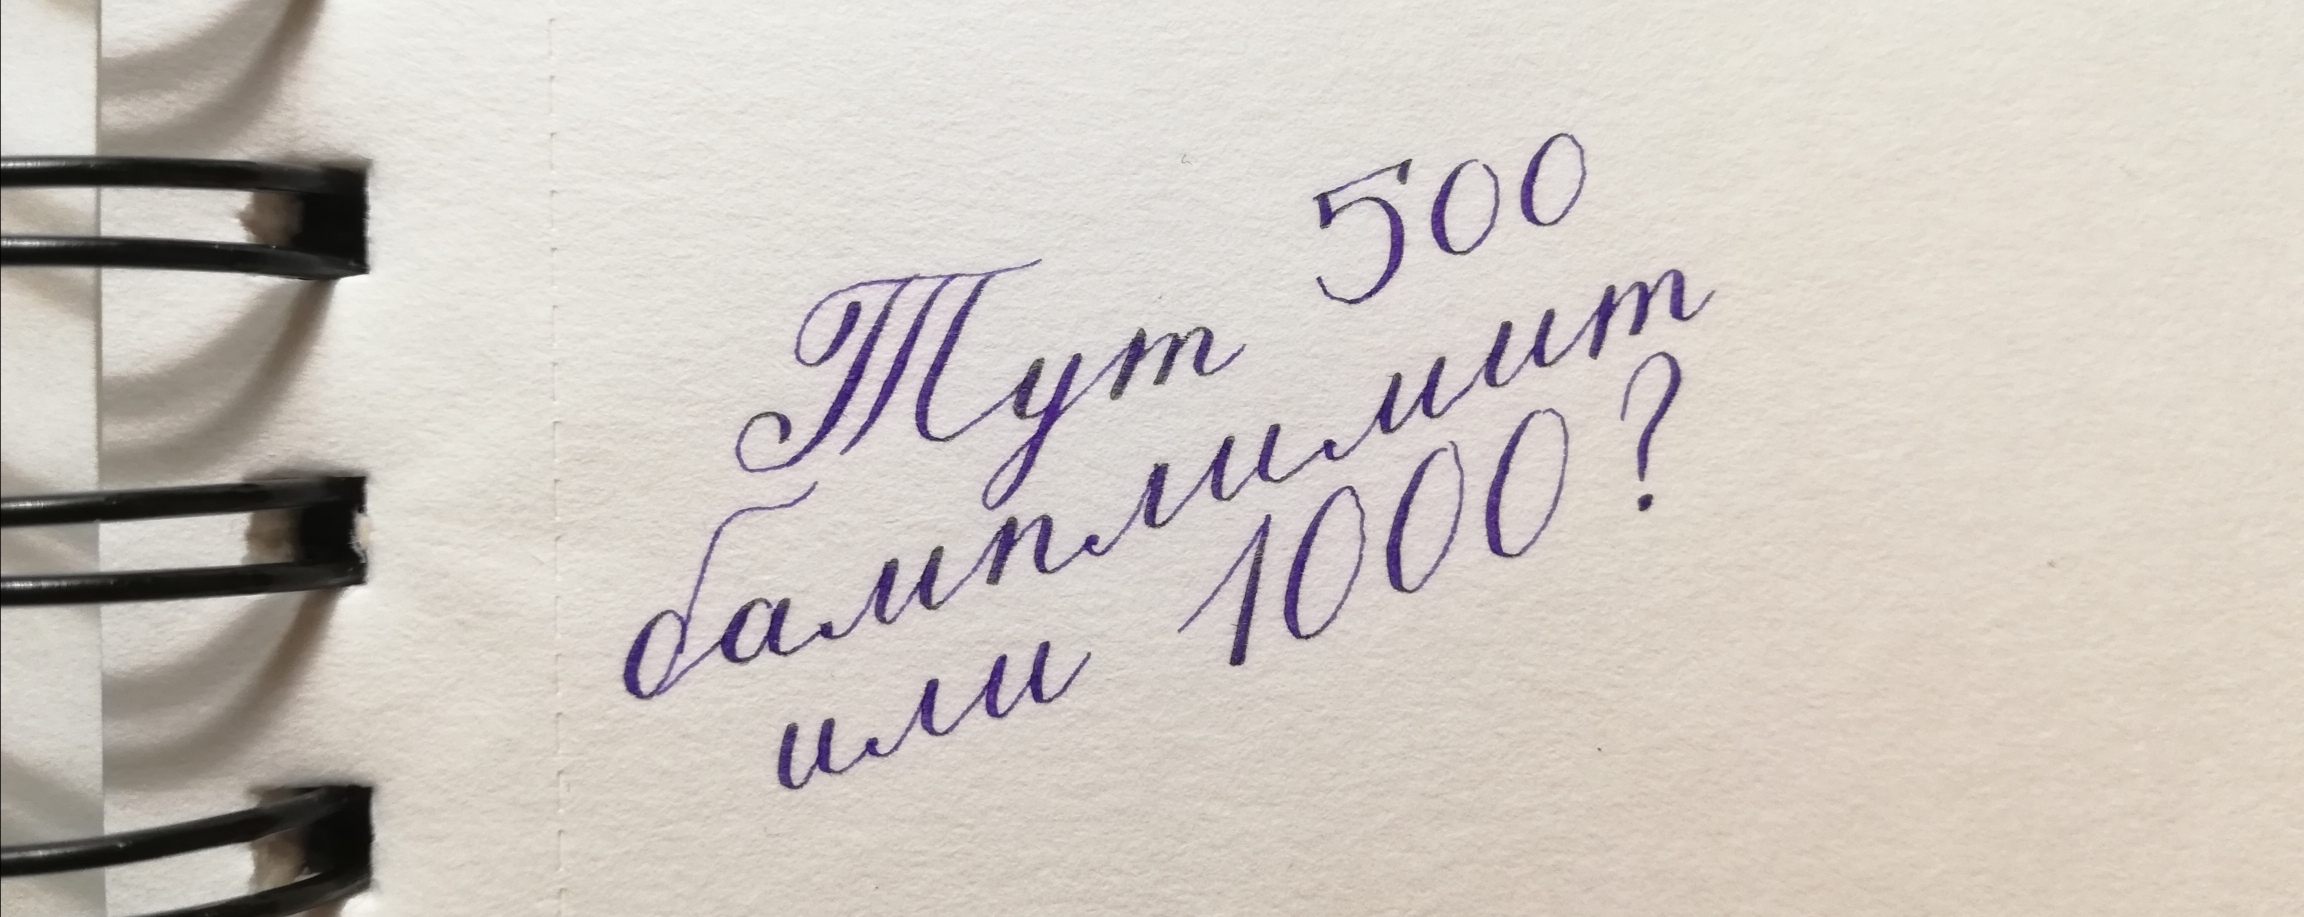 Тут 500
бамплимит
или 1000?